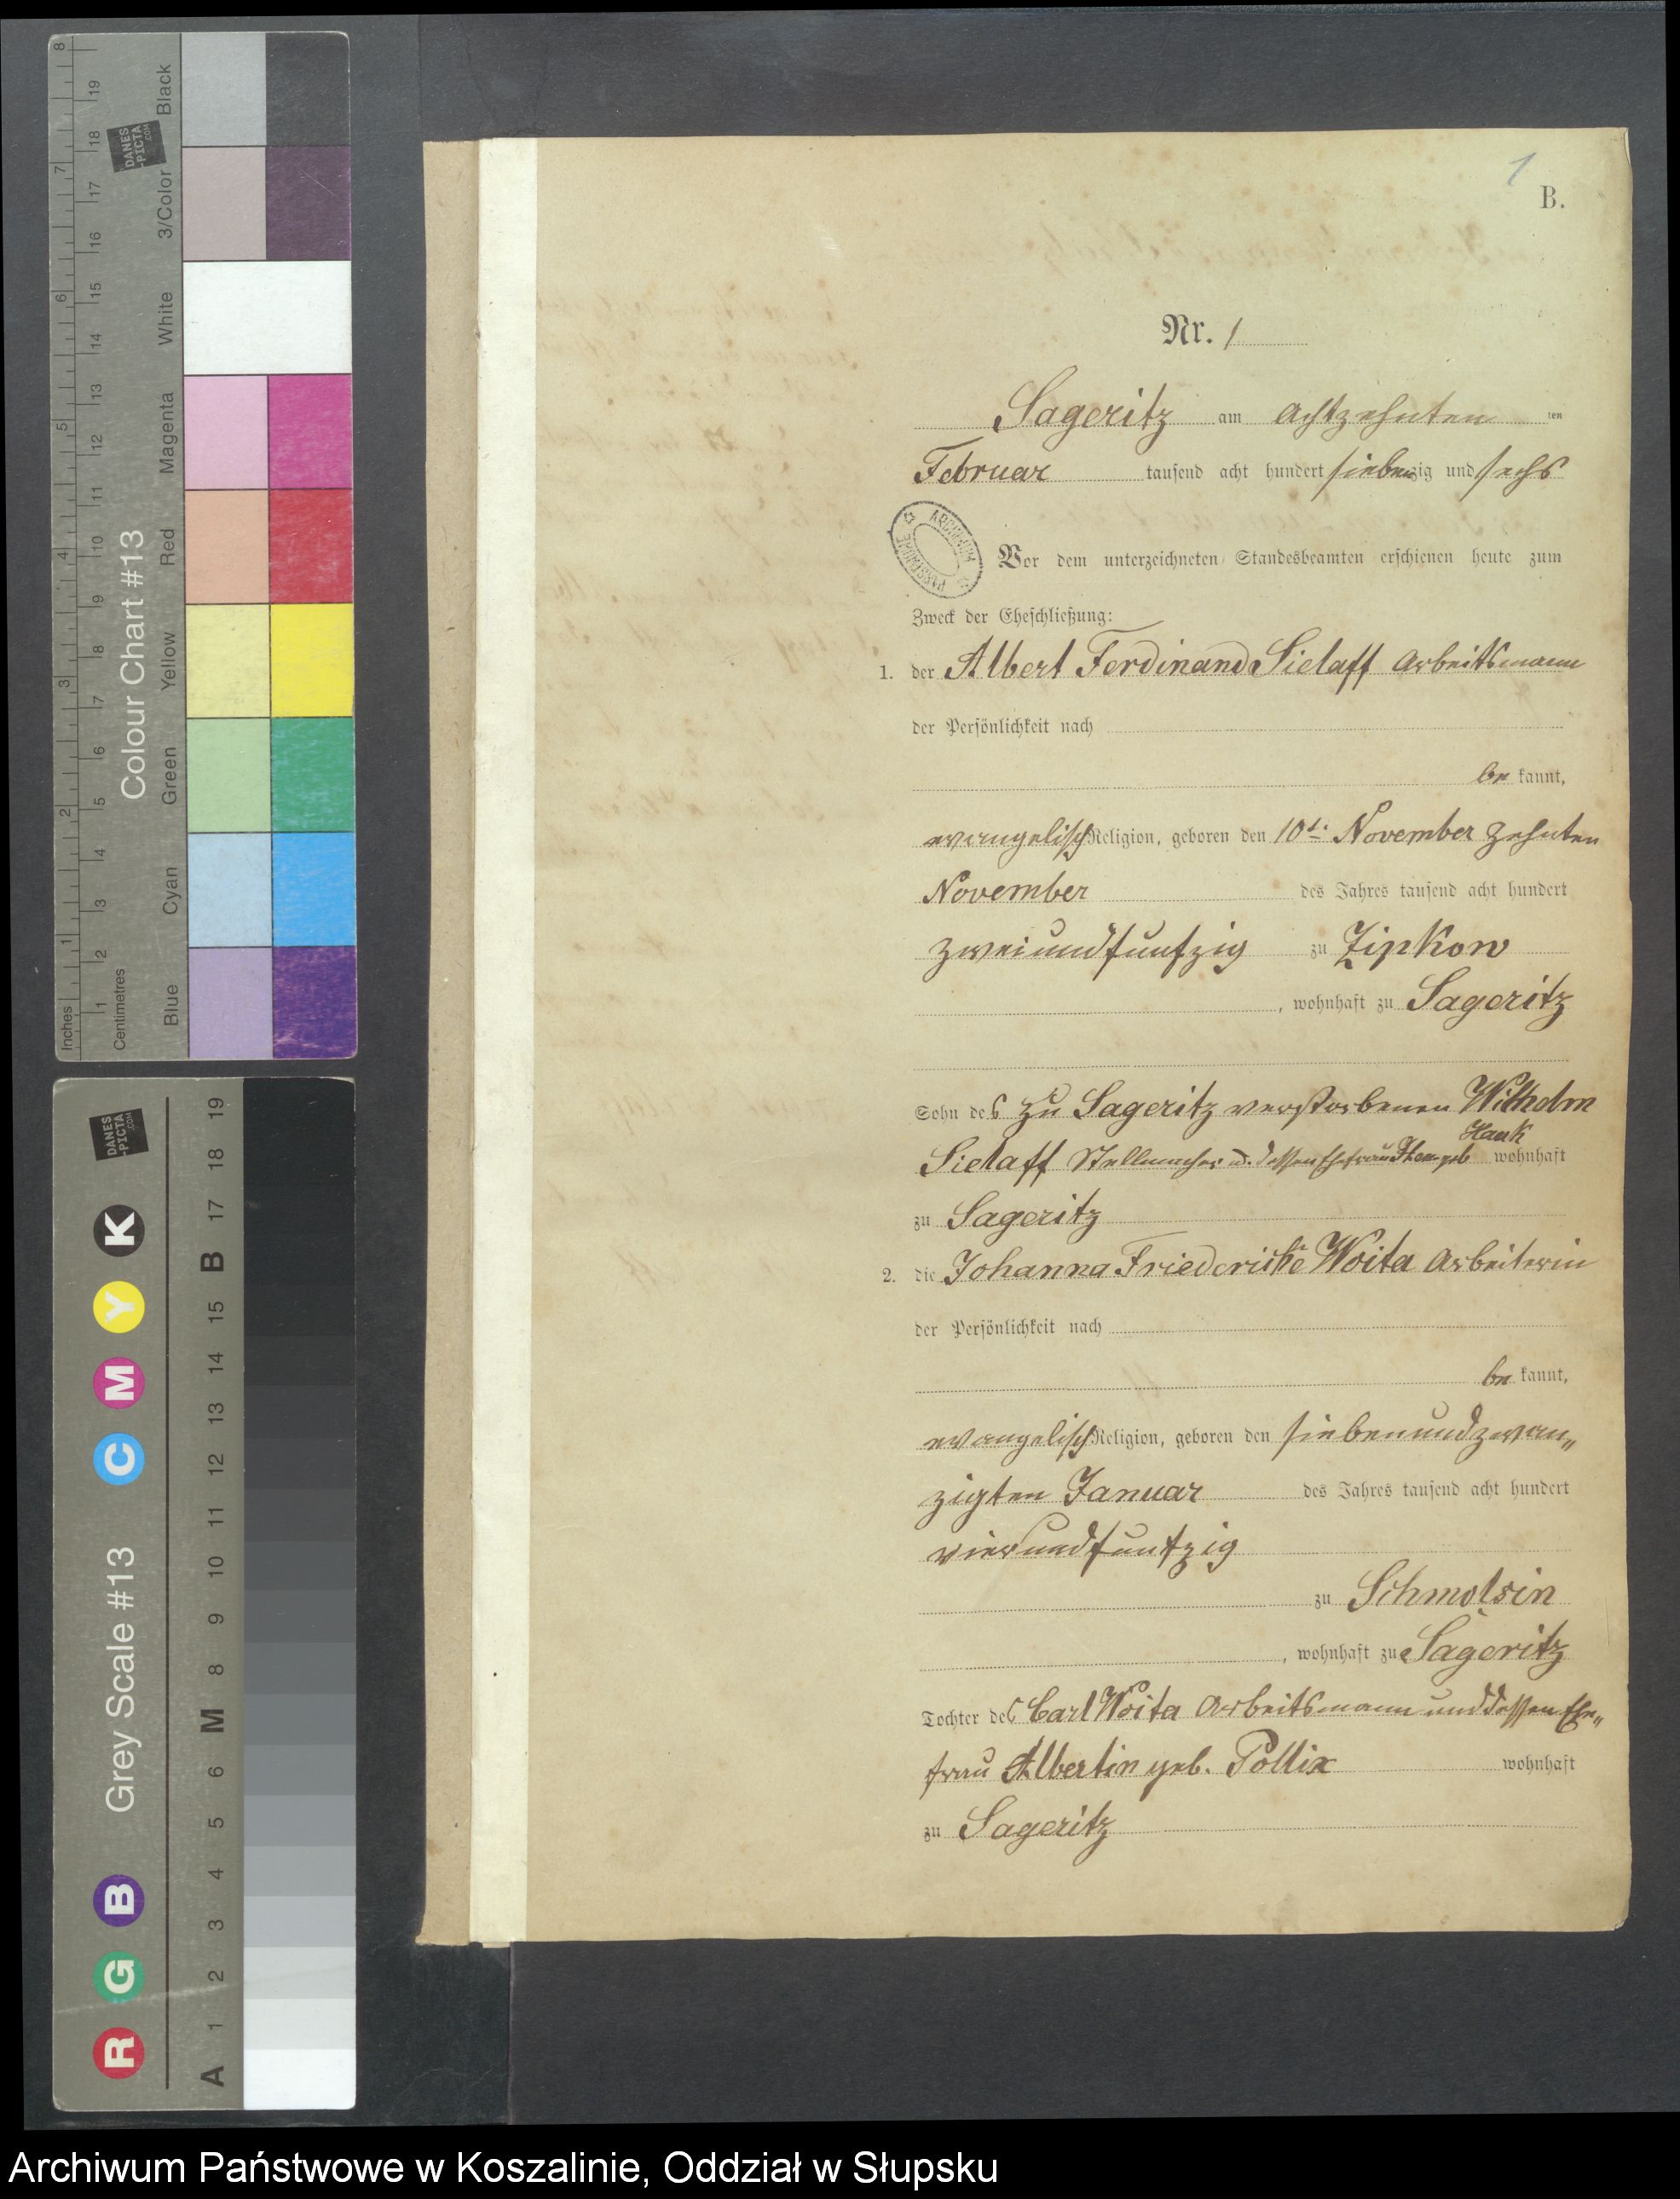 1
B.
Nr. 1
Sageritz am achtzehnten ten
Februar tausend acht hundert siebenzig und sechs
ARCHIWUM PAŃSTWOWE
Vor dem unterzeichneten Standesbeamten erschienen heute zum
Zweck der Eheschließung:
1. der Albert Ferdinand Sielaff Arbeitsmann
der Persönlichkeit nach
be kannt,
evangelisch Religion, geboren den 10t. November zehnten
November des Jahres tausend acht hundert
zweiundfunfzig zu Zipkow
, wohnhaft zu Sageritz
Sohn des zu Sageritz verstorbenen Wilhelm
Hauk
Sielaff Stellmacher u. dessen Ehefrau geb wohnhaft
zu Sageritz
2. die Johanna Friedericke Woita Arbeiterin
der Persönlichkeit nach
be kannt,
evangelisch Religion, geboren den siebenundzwan„
zigten Januar des Jahres tausend acht hundert
vierundfunfzig
zu Schmolsin
, wohnhaft zu Sageritz
Tochter des Carl Woita Arbeitsmann und dessen Ehe„
frau Albertin geb. Pollix wohnhaft
zu Sageritz
Colour Chart #13
Inches 1 2 3 4 5 6 7 8
Centimetres 1 2 3 4 5 6 7 8 9 10 11 12 13 14 15 16 17 18 19
Blue Cyan Green Yellow Red Magenta White 3/Color Black
DANES
-PICTA
.COM
Grey Scale #13
R G B C M Y K
A 1 2 3 4 5 6 M 8 9 10 11 12 13 14 15 B 17 18 19
DANES
-PICTA
.COM
Archiwum Państwowe w Koszalinie, Oddział w Słupsku